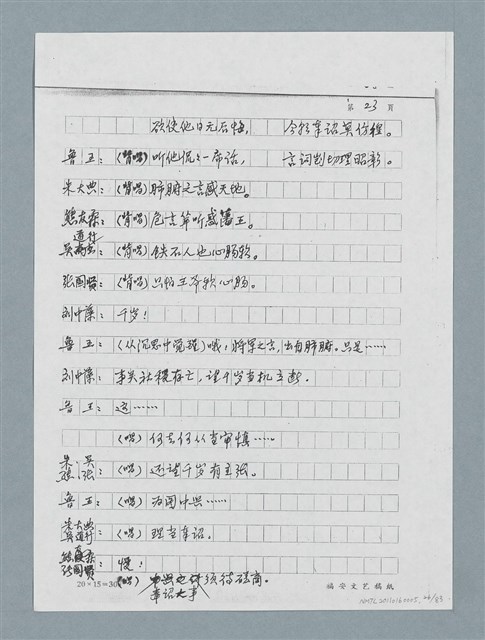 第 23 页
欲使他日无后悔， 今能奉诏莫彷徨。
鲁王：（背唱）听他说上一席话， 言词剀切理昭彰。
朱大典：（背唱）肺腑之言感天地。
熊友霖：（背唱）危言耸听惑藩王。
吴道行：（背唱）铁石人也心肠软。
张国贤：（背唱）只怕王爷软心肠。
刘中藻：千岁！
鲁王：（从沉思中觉醒）哦！将军之言，出自肺腑。只是……
刘中藻：事关社稷存亡，望千岁当机立断。
鲁王：这……
（唱）何去何从当审慎……
朱、吴
熊、张：（唱）还望千岁有主张。
鲁王：（唱）为图中兴……
朱大典
吴道行：（唱）理当奉诏。
熊友霖
张国贤：慢！
（唱）奉诏大事 须待磋商。
20×15=300
福安文艺稿纸